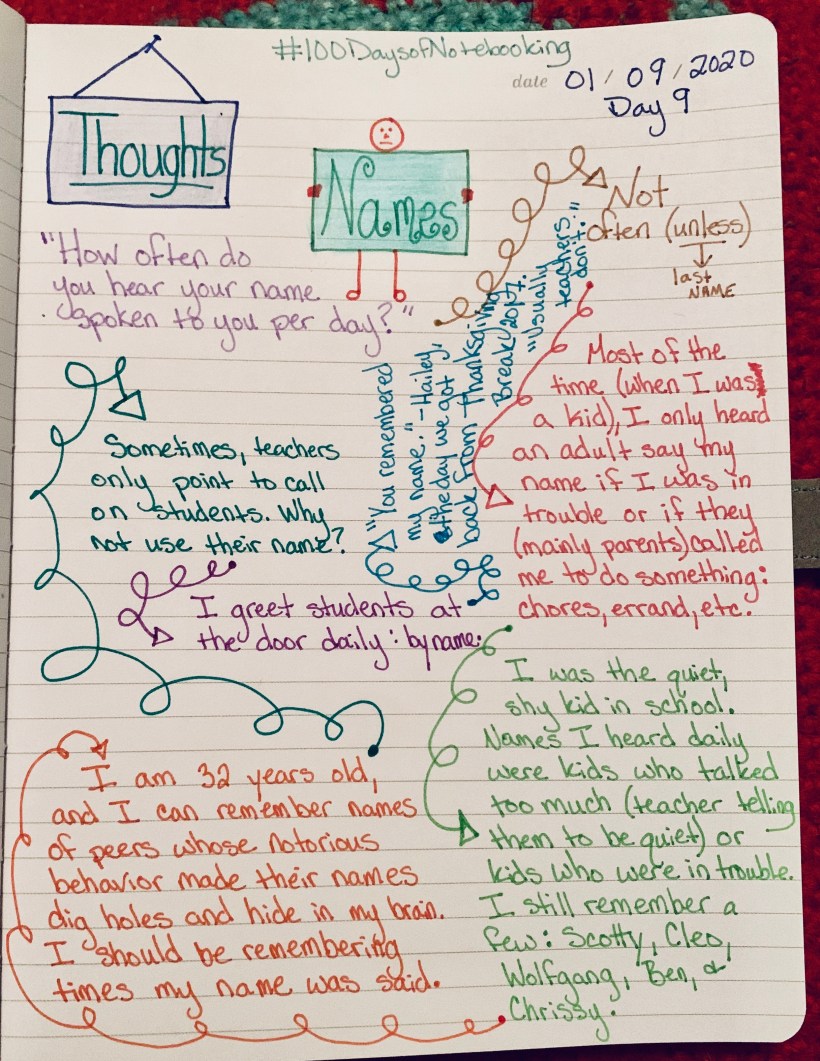 #100DaysofNotebooking
date 01/09/2020
Day 9
Thoughts
Names
"How often do
you hear your name
spoken to you per day?"
Not
often (unless)
last
NAME
Most of the
time (when I was
a kid), I only heard
an adult say my
name if I was in
trouble or if they
(mainly parents) called
me to do something:
chores, errand, etc.
I was the quiet,
shy kid in school.
Names I heard daily
were kids who talked
too much (teacher telling
them to be quiet) or
kids who were in trouble.
I still remember a
few: Scotty, Cleo,
Wolfgang, Ben, &
Chrissy.
I am 32 years old,
and I can remember names
of peers whose notorious
behavior made their names
dig holes and hide in my brain.
I should be remembering
times my name was said.
Sometimes, teachers
only point to call
on students. Why
not use their name?
I greet students at
the door daily: by name.
"You remembered
my name." - Hailey,
the day we got
back from Thanksgiving
Break 2017.
"Usually
teachers
don't."